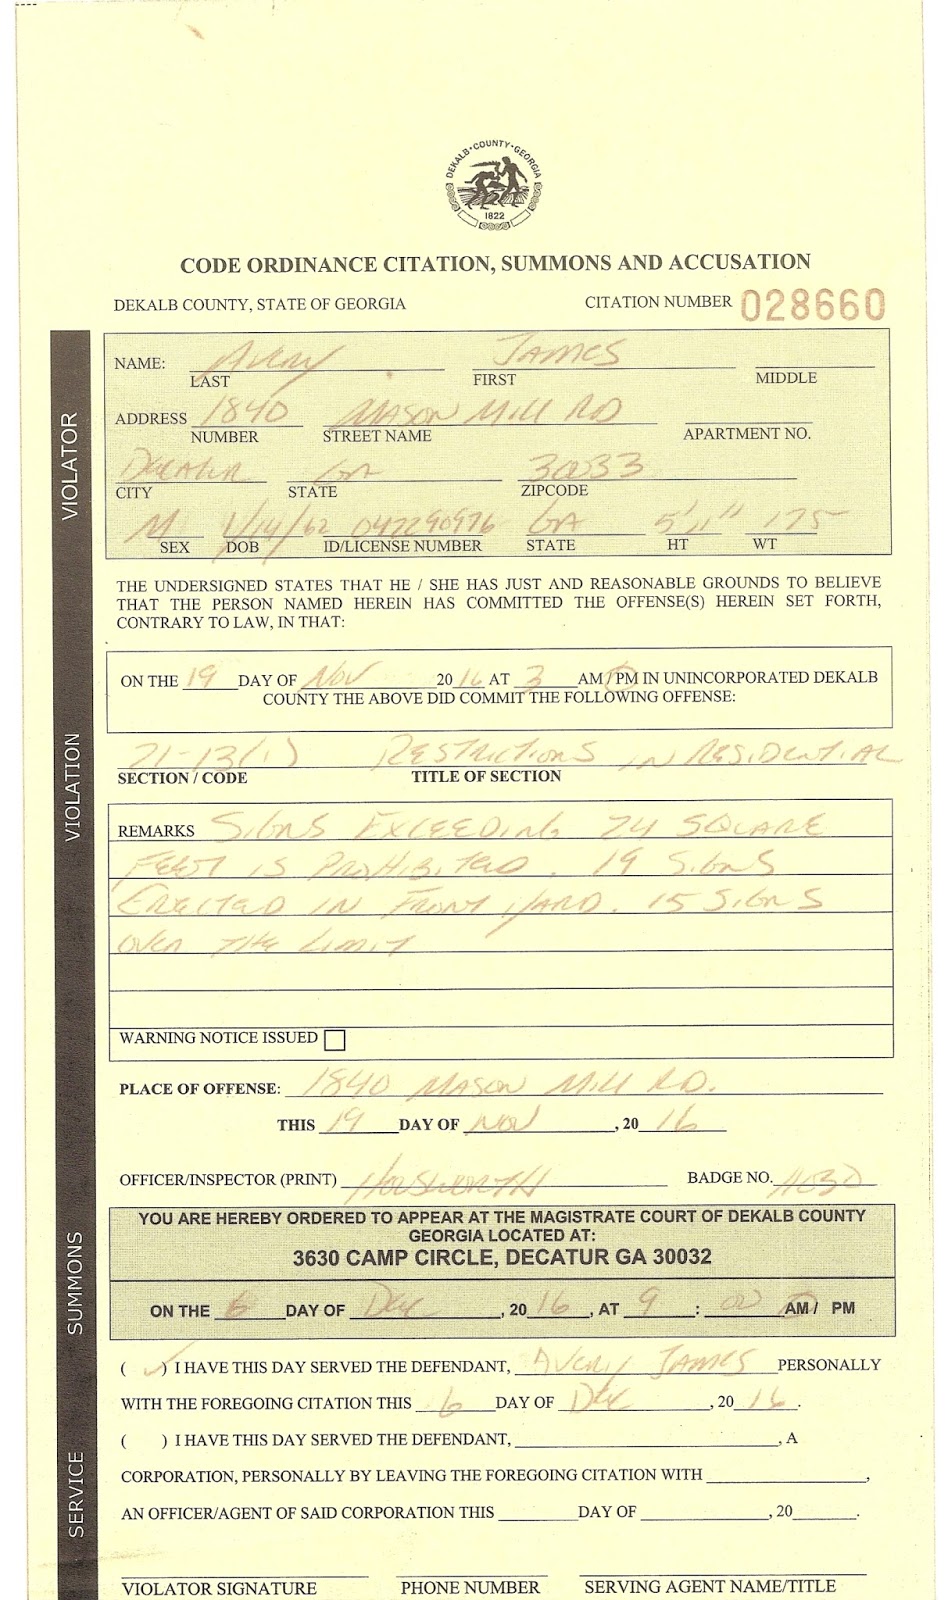 DEKALB·COUNTY·GEORGIA
1822
CODE ORDINANCE CITATION, SUMMONS AND ACCUSATION
DEKALB COUNTY, STATE OF GEORGIA CITATION NUMBER 028660
VIOLATOR
NAME: Avery JAMES
LAST FIRST MIDDLE
ADDRESS 1840 MASON MILL RD
NUMBER STREET NAME APARTMENT NO.
DECATUR GA 30033
CITY STATE ZIPCODE
M 1/14/62 042290976 GA 5' 11" 175
SEX DOB ID/LICENSE NUMBER STATE HT WT
THE UNDERSIGNED STATES THAT HE / SHE HAS JUST AND REASONABLE GROUNDS TO BELIEVE
THAT THE PERSON NAMED HEREIN HAS COMMITTED THE OFFENSE(S) HEREIN SET FORTH,
CONTRARY TO LAW, IN THAT:
VIOLATION
ON THE 19 DAY OF NOV 2016 AT 3 AM/PM IN UNINCORPORATED DEKALB
COUNTY THE ABOVE DID COMMIT THE FOLLOWING OFFENSE:
21-13(1) RESTRICTIONS IN RESIDENTIAL
SECTION / CODE TITLE OF SECTION
REMARKS SIGNS EXCEEDING 24 SQUARE
FEET IS PROHIBITED. 19 SIGNS
ERECTED IN FRONT YARD. 15 SIGNS
OVER THE LIMIT
WARNING NOTICE ISSUED
PLACE OF OFFENSE: 1840 MASON MILL RD.
THIS 19 DAY OF NOV, 2016
OFFICER/INSPECTOR (PRINT) HOUSWORTH BADGE NO.
SUMMONS
YOU ARE HEREBY ORDERED TO APPEAR AT THE MAGISTRATE COURT OF DEKALB COUNTY
GEORGIA LOCATED AT:
3630 CAMP CIRCLE, DECATUR GA 30032
ON THE 6 DAY OF DEC, 2016, AT 9:00 AM / PM
SERVICE
( ✓ ) I HAVE THIS DAY SERVED THE DEFENDANT, AVERY JAMES PERSONALLY
WITH THE FOREGOING CITATION THIS 6 DAY OF DEC, 2016.
( ) I HAVE THIS DAY SERVED THE DEFENDANT, , A
CORPORATION, PERSONALLY BY LEAVING THE FOREGOING CITATION WITH ,
AN OFFICER/AGENT OF SAID CORPORATION THIS DAY OF , 20 .
VIOLATOR SIGNATURE PHONE NUMBER SERVING AGENT NAME/TITLE